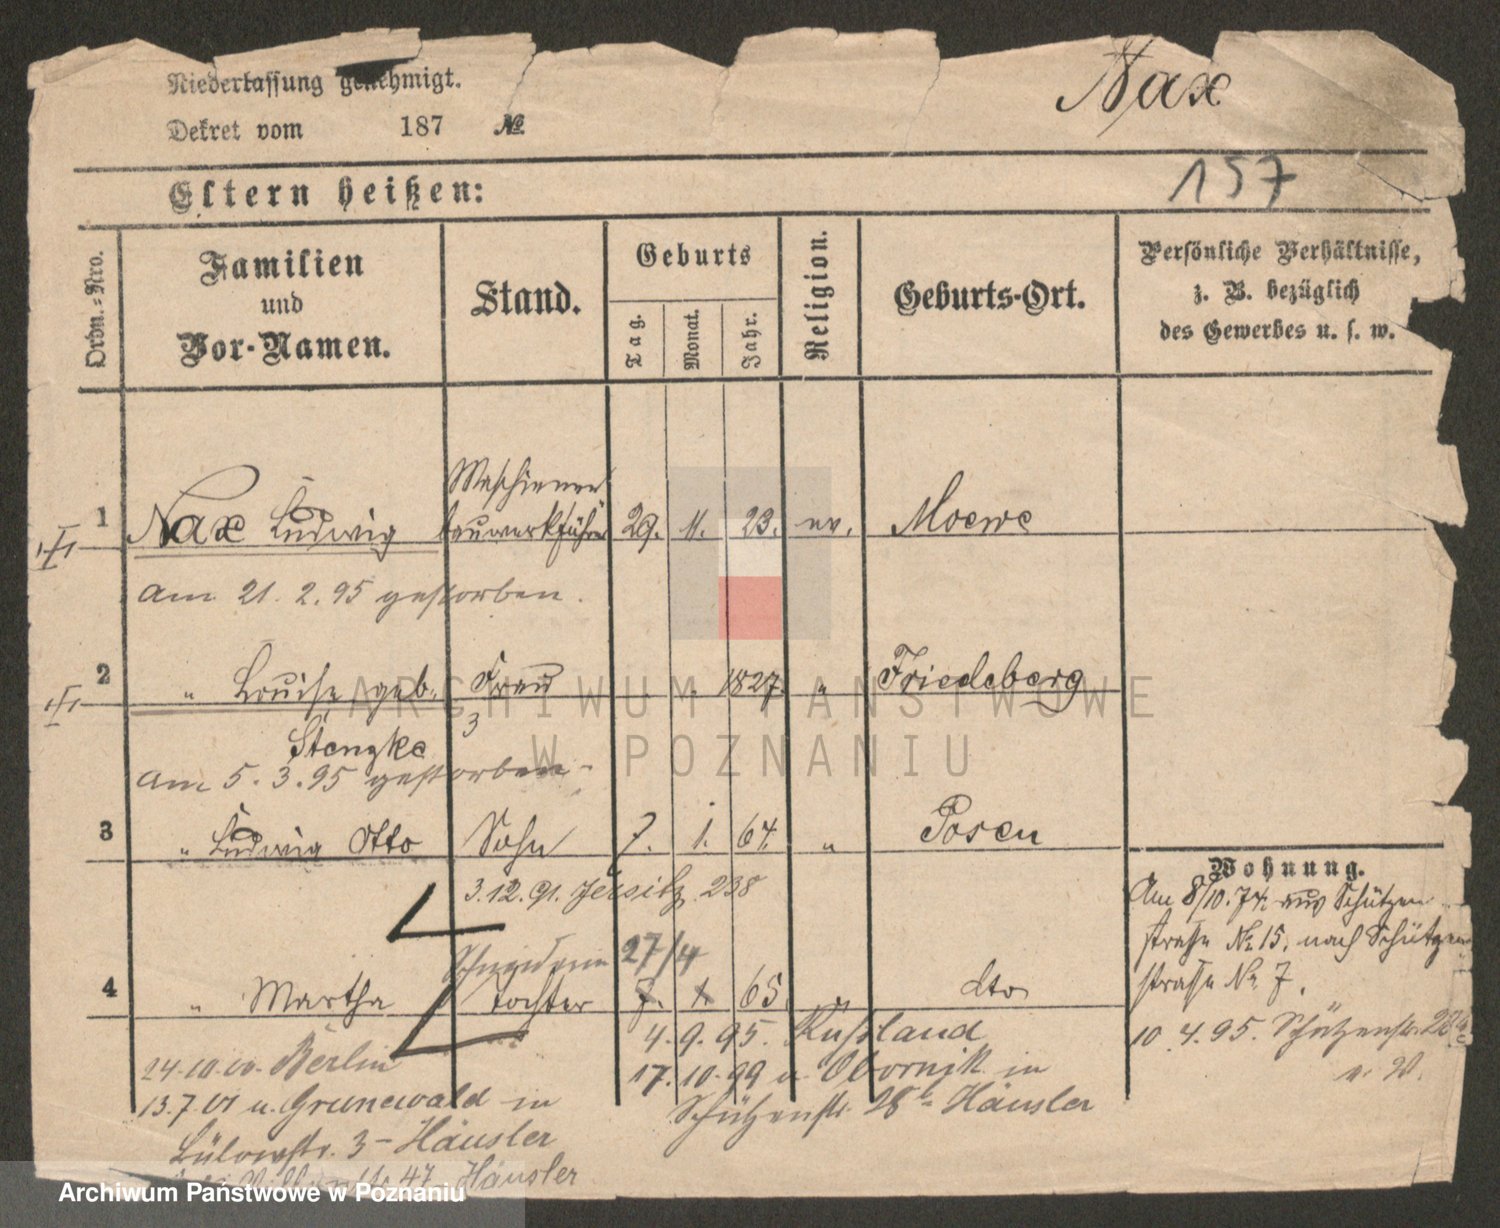 Niederlassung genehmigt.
Nax
Dekret vom 187 №
157
Eltern heißen:
Ordn.-Nro.
Familien
und
Vor-Namen.
Stand.
Geburts
Tag.
Monat.
Jahr.
Religion.
Geburts-Ort.
Persönliche Verhältnisse,
z. B. bezüglich
des Gewerbes u. s. w.
Maschienen
1 Nax Ludwig bauwerkführer 29. 11. 23. ev. Moewe
am 21. 2. 95 gestorben.
2 " Louise geb. Frau 1827 " Friedeberg
3
Stenzke
am 5. 3. 95 gestorben
3 " Ludwig Otto Sohn 7. 1. 64. " Posen
3.12.91. Jersitz 238
Wohnung.
Am 8/10. 74. aus Schützen
straße No 15. nach Schützen
straße No 7.
Schneiderin 27/4
4 " Martha tochter 7. 1. 65. " dto
4. 9. 95. Russland
10. 4. 95. Schützenstr.
24.10.00. Berlin
17. 10. 99 u. Obornik in
13.7.01 u. Grunewald in
Schützenstr. 28b Häusler
Bülowstr. 3 - Häusler
47 Häusler
ARCHIWUM PAŃSTWOWE
W POZNANIU
Archiwum Państwowe w Poznaniu